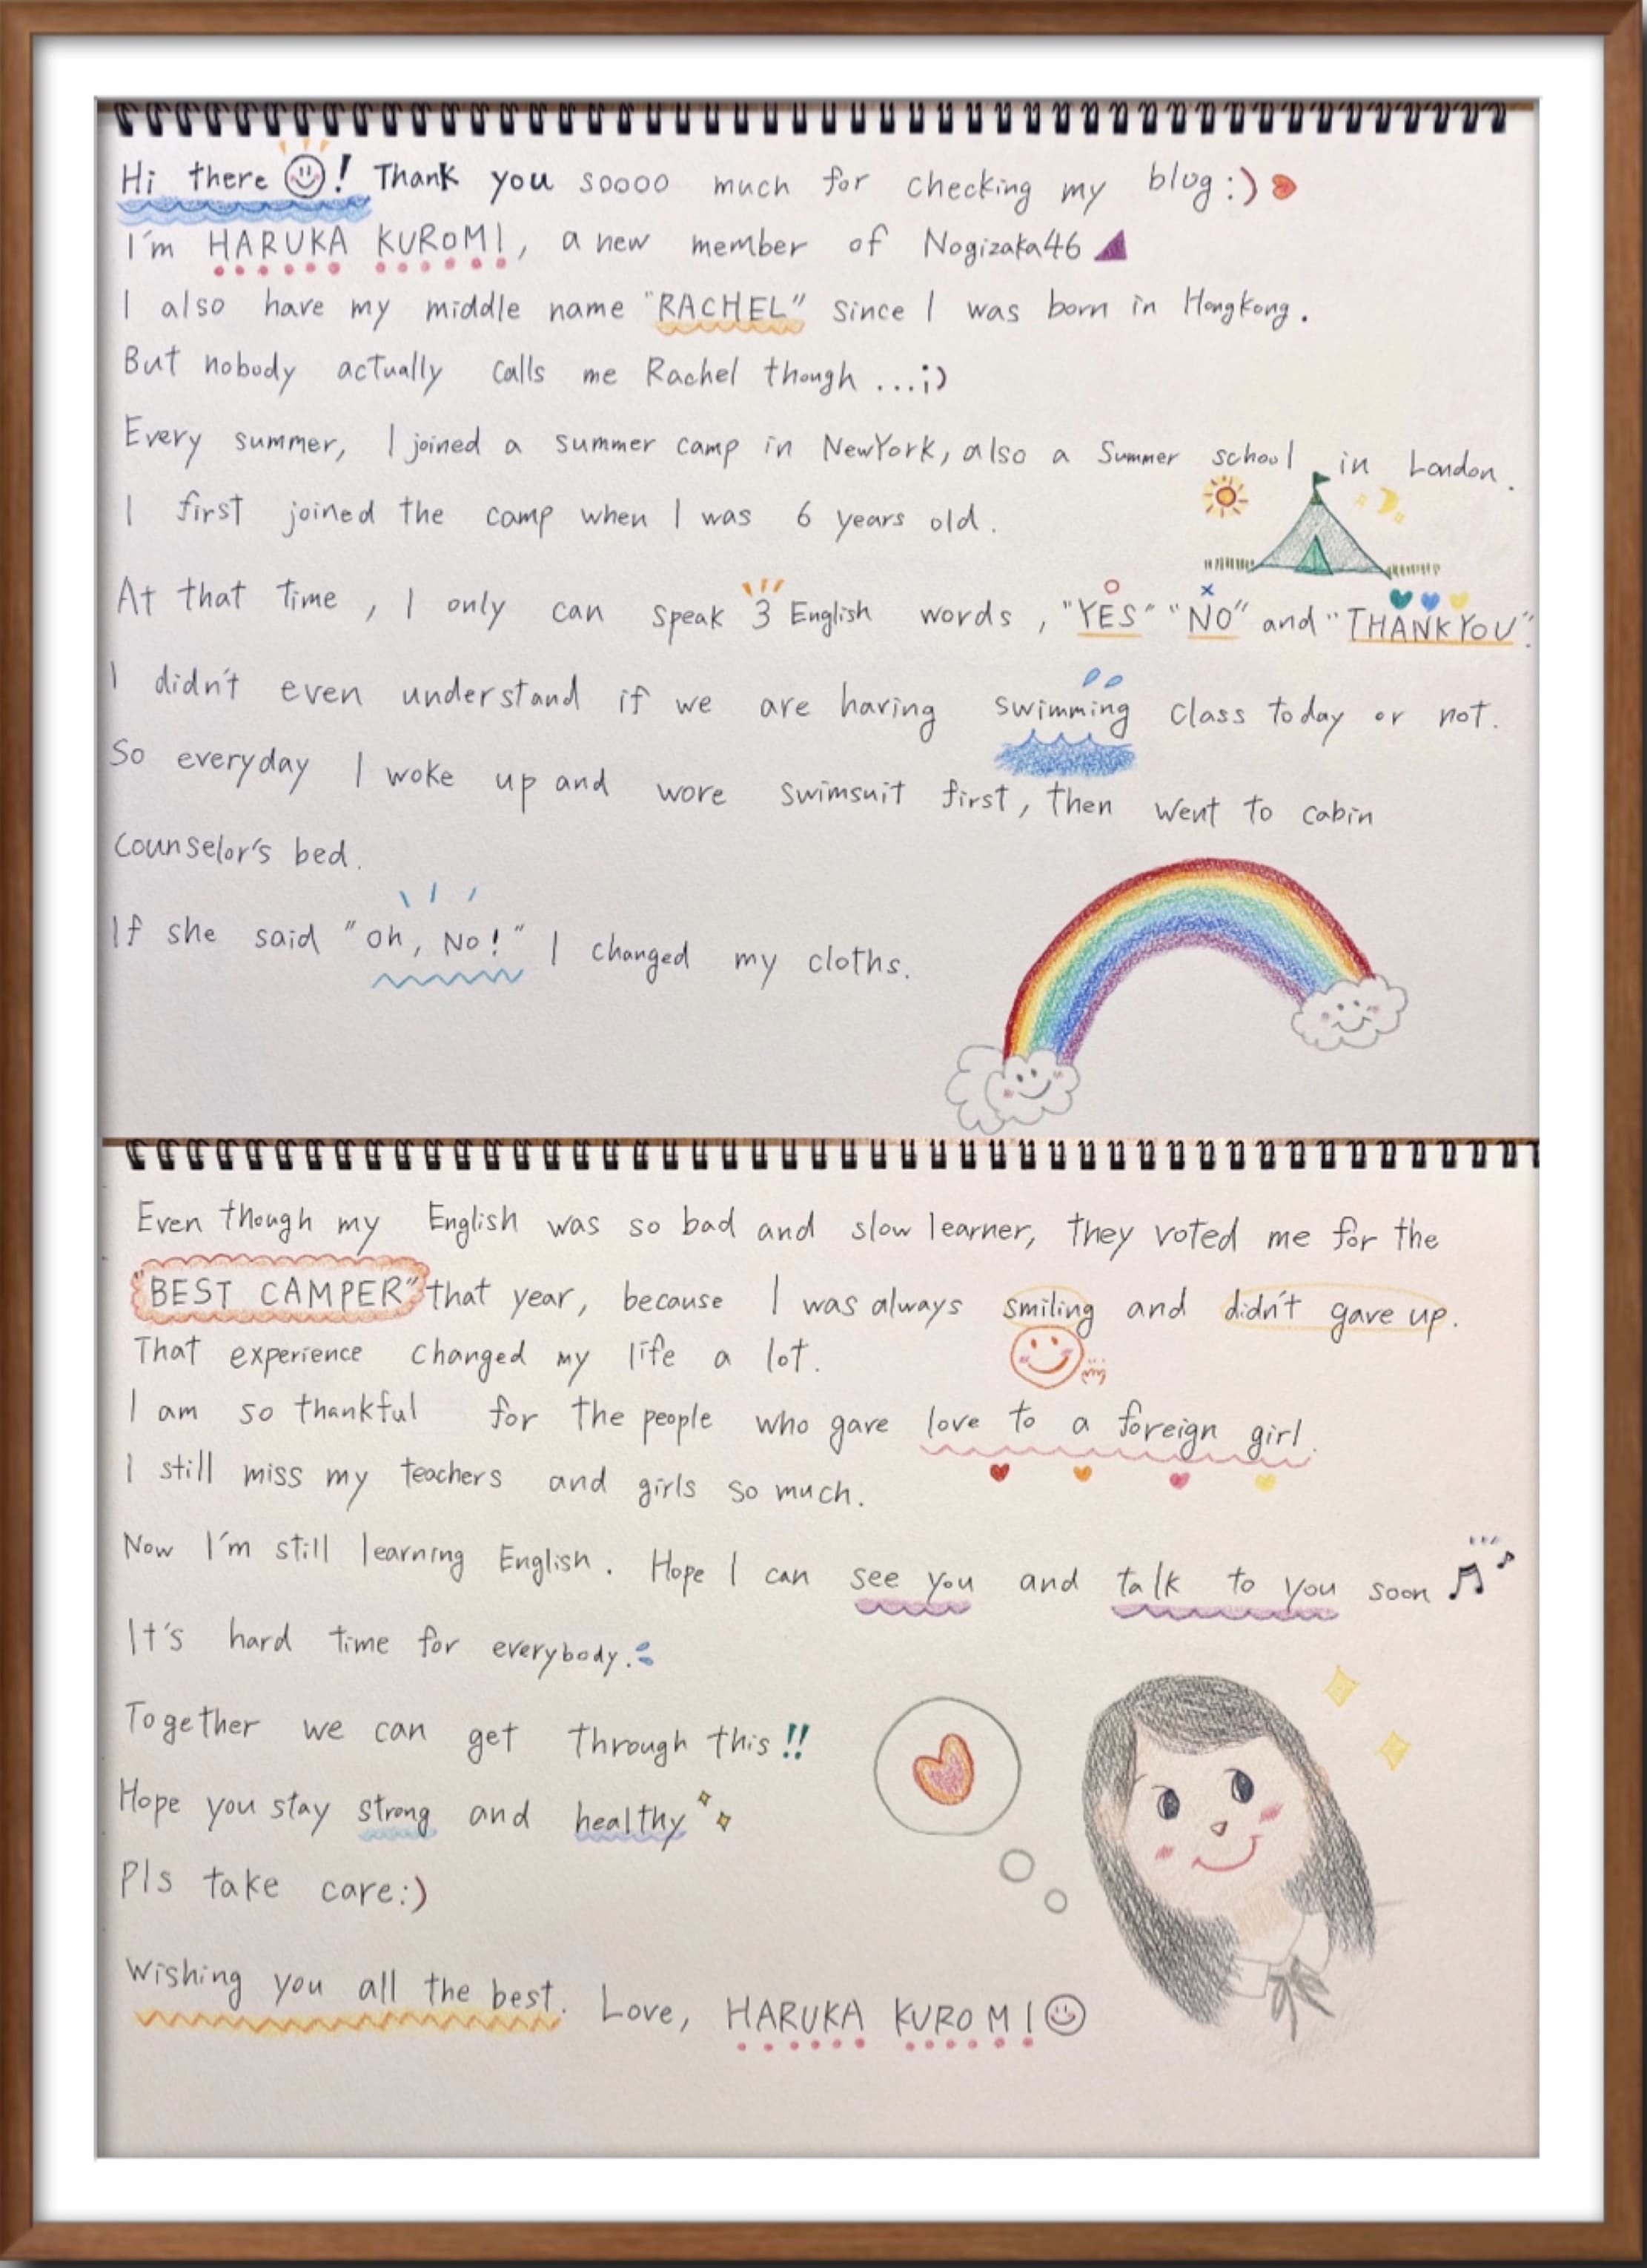 Hi there ! Thank you soooo much for checking my blog:)
I'm HARUKA KUROMI, a new member of Nogizaka46
I also have my middle name "RACHEL" since I was born in Hongkong.
But nobody actually calls me Rachel though ...;)
Every summer, I joined a summer camp in NewYork, also a Summer school in London.
I first joined the camp when I was 6 years old.
At that time, I only can speak 3 English words, "YES" "NO" and "THANKYOU".
I didn't even understand if we are having swimming class today or not.
So everyday I woke up and wore swimsuit first, then went to cabin
counselor's bed.
If she said "Oh, No!" I changed my cloths.
Even though my English was so bad and slow learner, they voted me for the
"BEST CAMPER" that year, because I was always smiling and didn't gave up.
That experience changed my life a lot.
I am so thankful for the people who gave love to a foreign girl.
I still miss my teachers and girls so much.
Now I'm still learning English. Hope I can see you and talk to you soon
It's hard time for everybody.
Together we can get through this!!
Hope you stay strong and healthy
Pls take care:)
Wishing you all the best. Love, HARUKA KUROMI